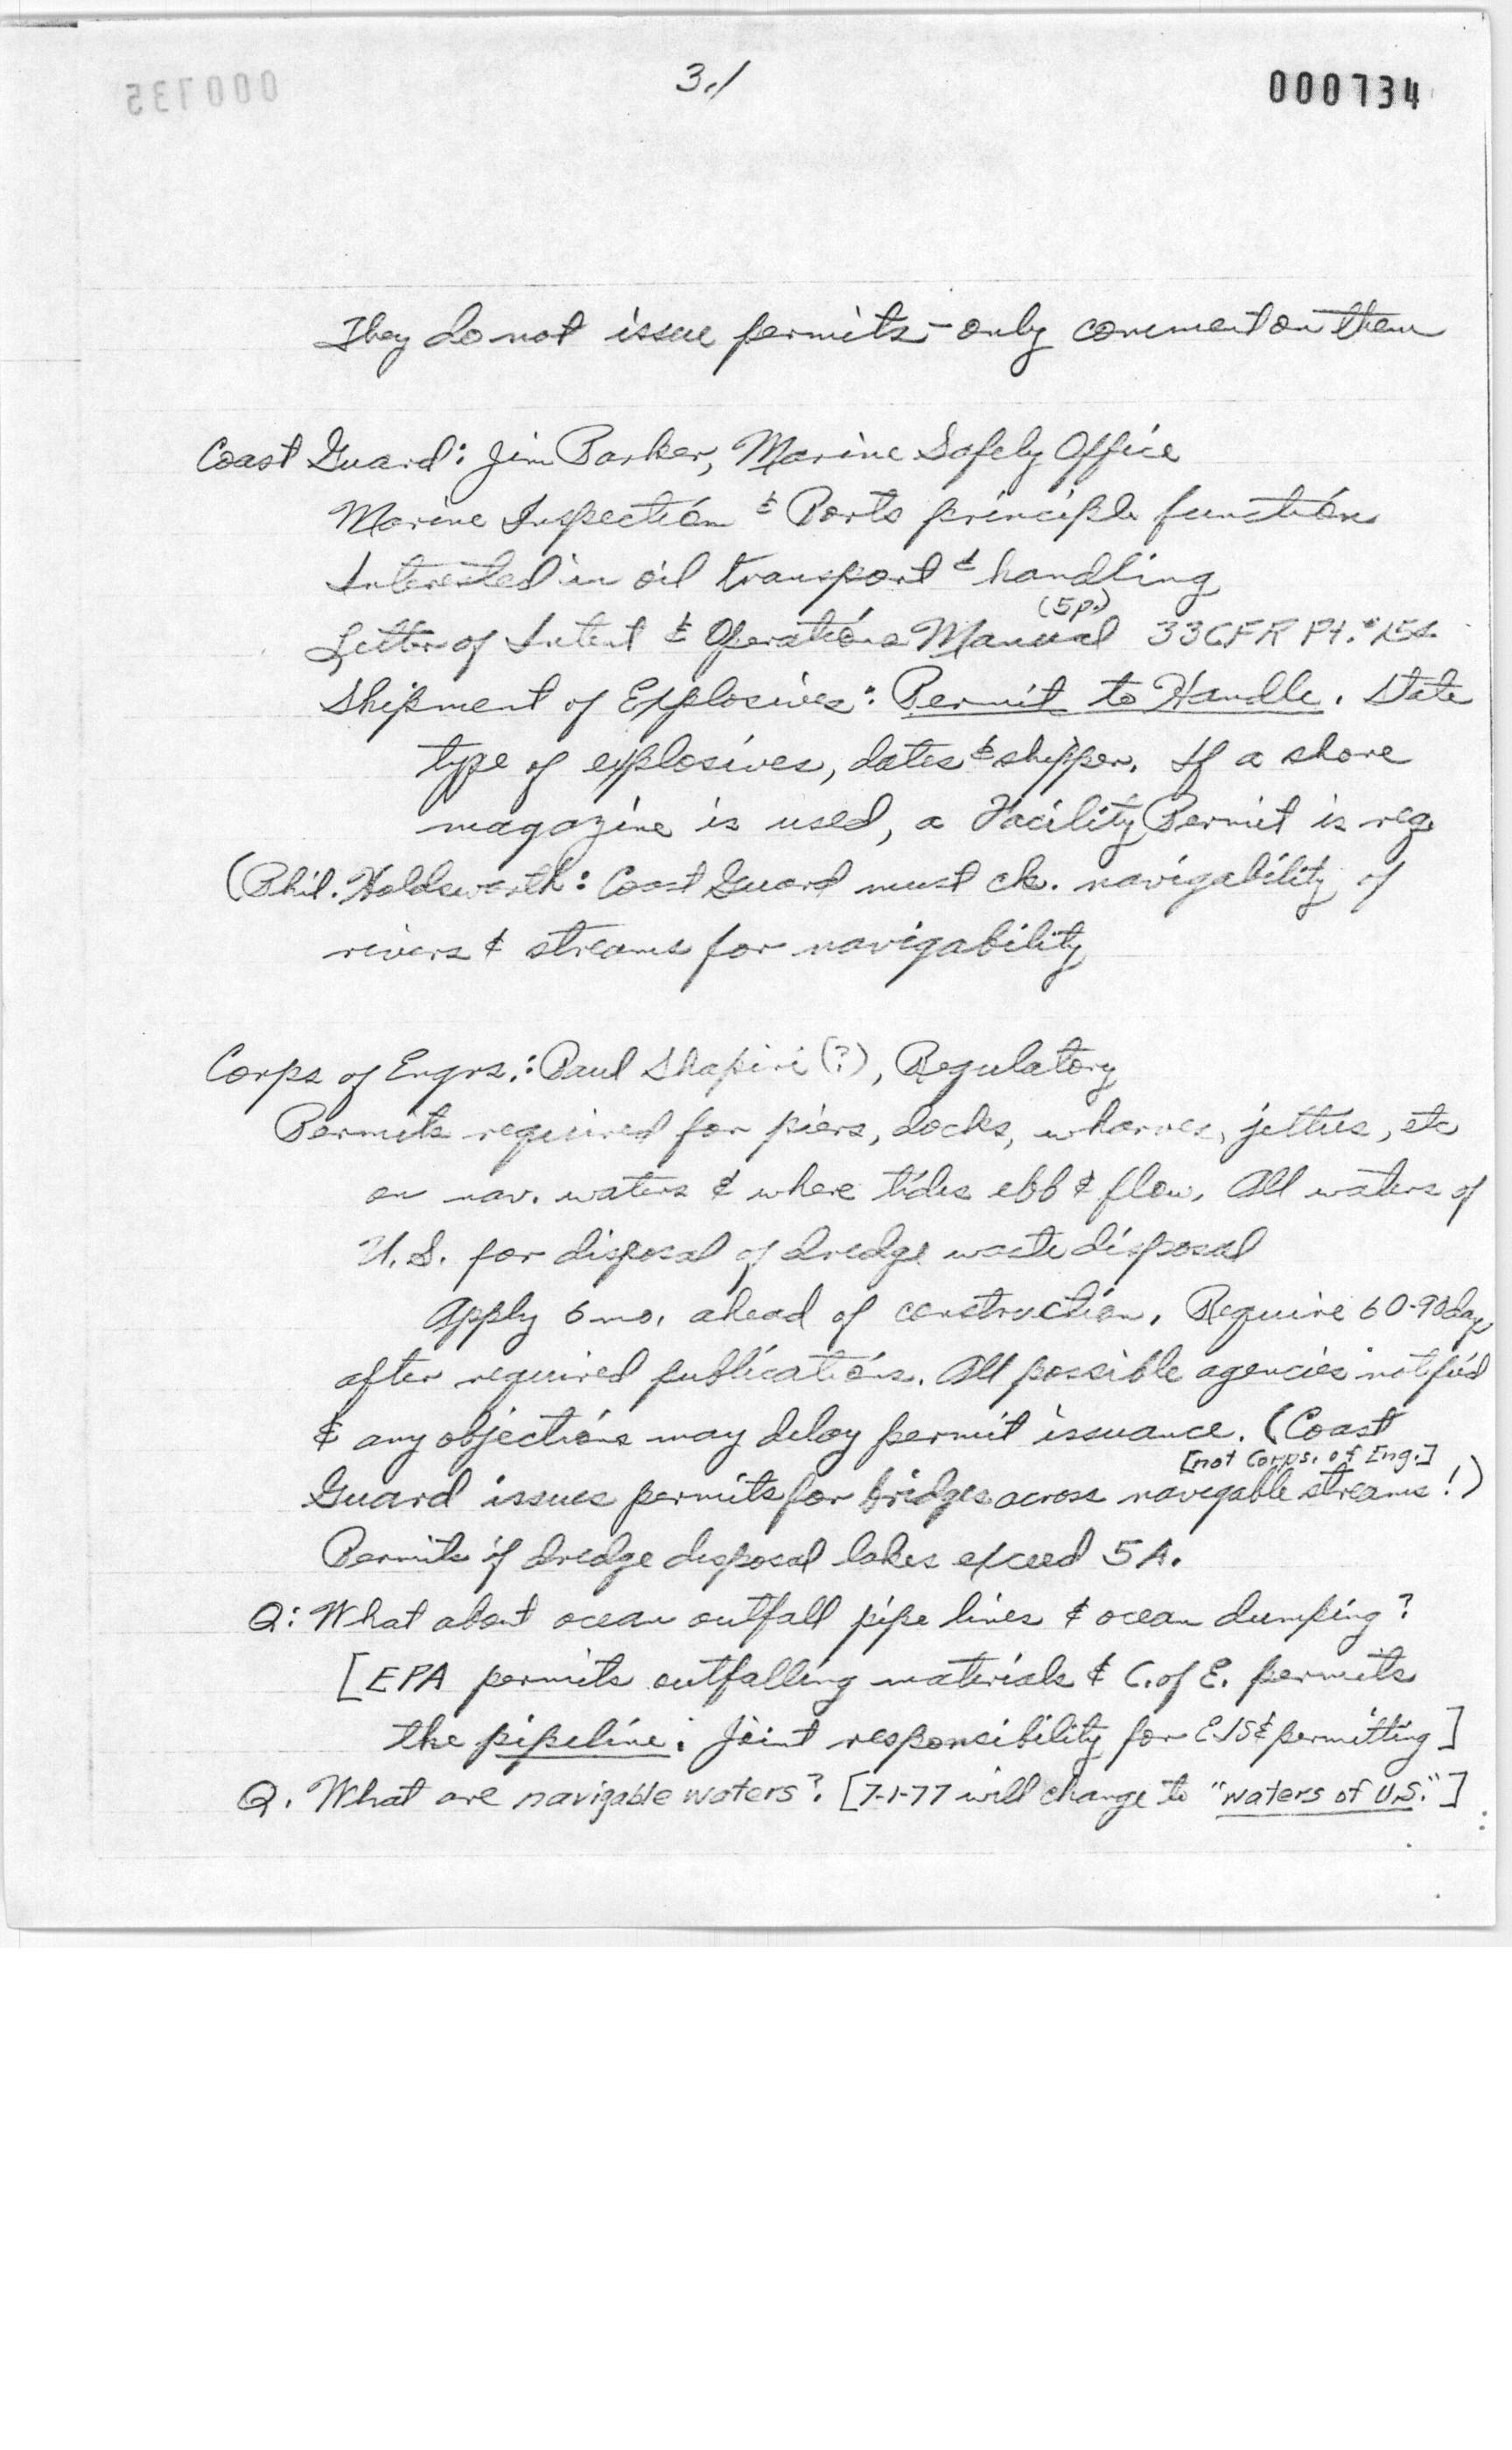 3./
000734
000735
They do not issue permits - only comment on them
Coast Guard: Jim Barker, Marine Safety Office
Marine Inspection & Ports principle function
Interested in oil transport & handling
(5p.)
Letter of Intent & Operations Manual 33 CFR Pt. 154.
Shipment of Explosives: Permit to Handle. State
type of explosives, dates & shipper. If a shore
magazine is used, a Facility Permit is req.
(Phil. Holdsworth: Coast Guard must ck. navigability of
rivers & streams for navigability
Corps of Engrs.: Paul Shapiri (?), Regulatory
Permits required for piers, docks, wharves, jetties, etc
on nav. waters & where tides ebb & flow. All waters of
U.S. for disposal of dredge waste disposal
Apply 6 mo. ahead of construction. Require 60-90 days
after required publications. All possible agencies notified
& any objections may delay permit issuance. (Coast
[not Corps. of Eng.]
Guard issues permits for bridges across navigable streams!)
Permits if dredge disposal lakes exceed 5A.
Q: What about ocean outfall pipe lines & ocean dumping?
[EPA permits outfalling materials & C. of E. permits
the pipeline. Joint responsibility for EIS & permitting]
Q. What are navigable waters? [7-1-77 will change to "waters of U.S."]